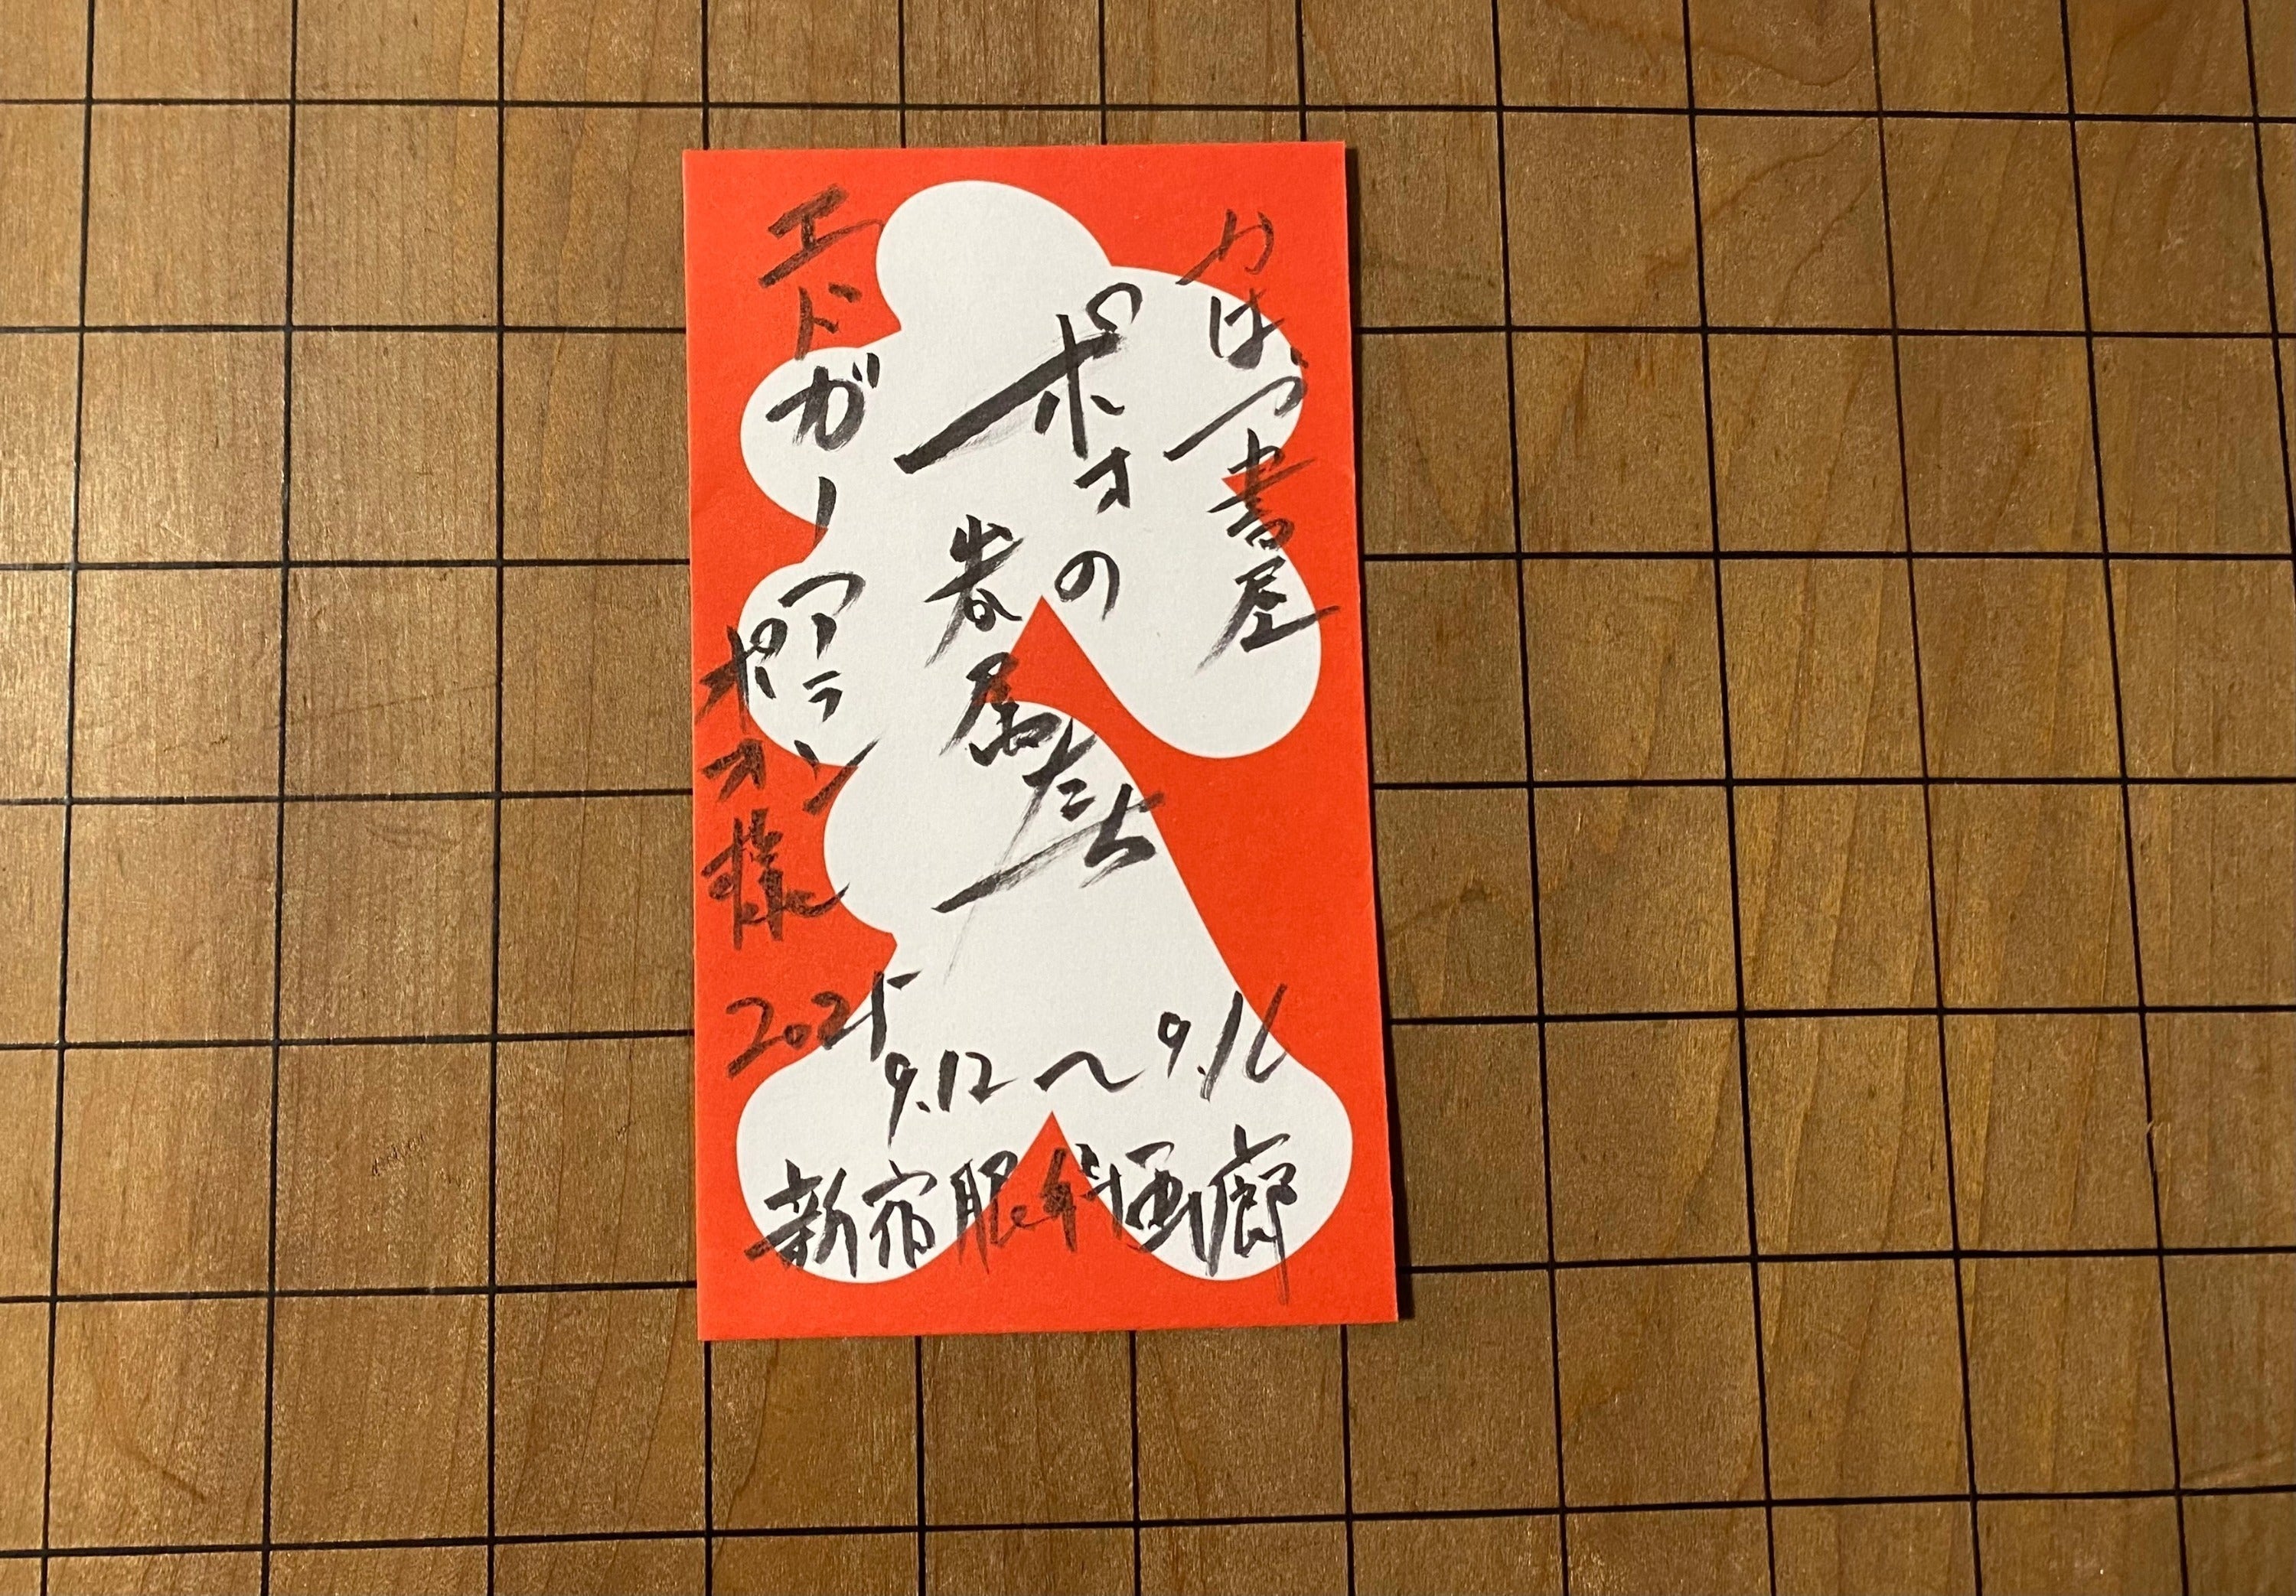 かはづ書屋
ポオの
眷属たち
エドガー
アラン
ポオ様
2025
9.12〜9.16
新宿眼科画廊